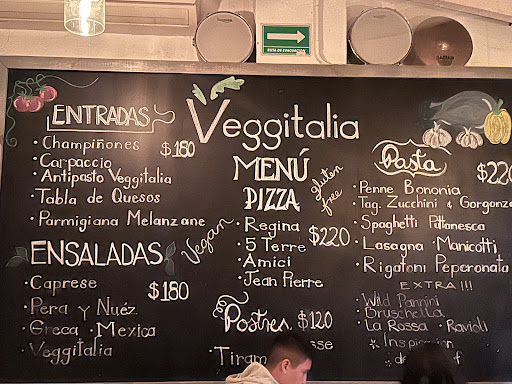 RUTA DE EVACUACIÓN
Veggitalia
MENÚ
PIZZA
gluten free
Vegan
· Regina
· 5 Terre
· Amici
· Jean Pierre
$220
Postres $120
· Tiram
ENTRADAS
· Champiñones
· Carpaccio
· Antipasto Veggitalia
· Tabla de Quesos
· Parmigiana Melanzane
$180
ENSALADAS
· Caprese
· Pera y Nuéz
· Greca · Mexica
· Veggitalia
$180
Pasta $220
· Penne Bononia
· Tag. Zucchini & Gorgonzo
· Spaghetti Puttanesca
· Lasagna · Manicotti
· Rigatoni Peperonata
EXTRA!!!
· Wild Pannini
· Bruschella
· La Rossa · Ravioli
* Inspiración